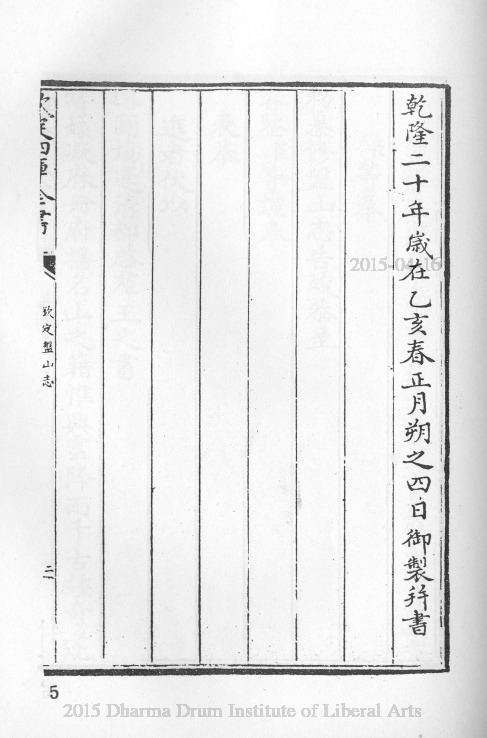 乾隆二十年歲在乙亥春正月朔之四日御製并書
欽定四庫全書
欽定盤山志
二
5
2015-04-16
2015 Dharma Drum Institute of Liberal Arts